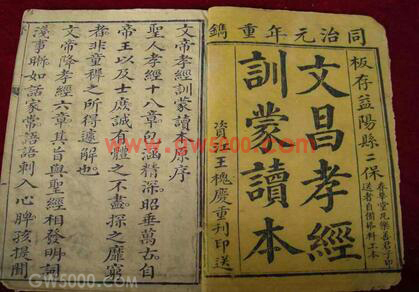 同治元年重鐫
板存益陽縣二保
文昌孝經
訓蒙讀本
資江王槐慶重刊印送
文帝孝經訓蒙讀本原序
聖人孝經十八章包涵精深昭垂萬古自
帝王以及士庶誠有體之不盡探之靡窮
者非童稚之所得遽解也
文帝降孝經六章其旨與聖經相發明詞
淺事眎如話家常語語刺入心脾孩提聞
www.gw5000.com
GW5000.COM